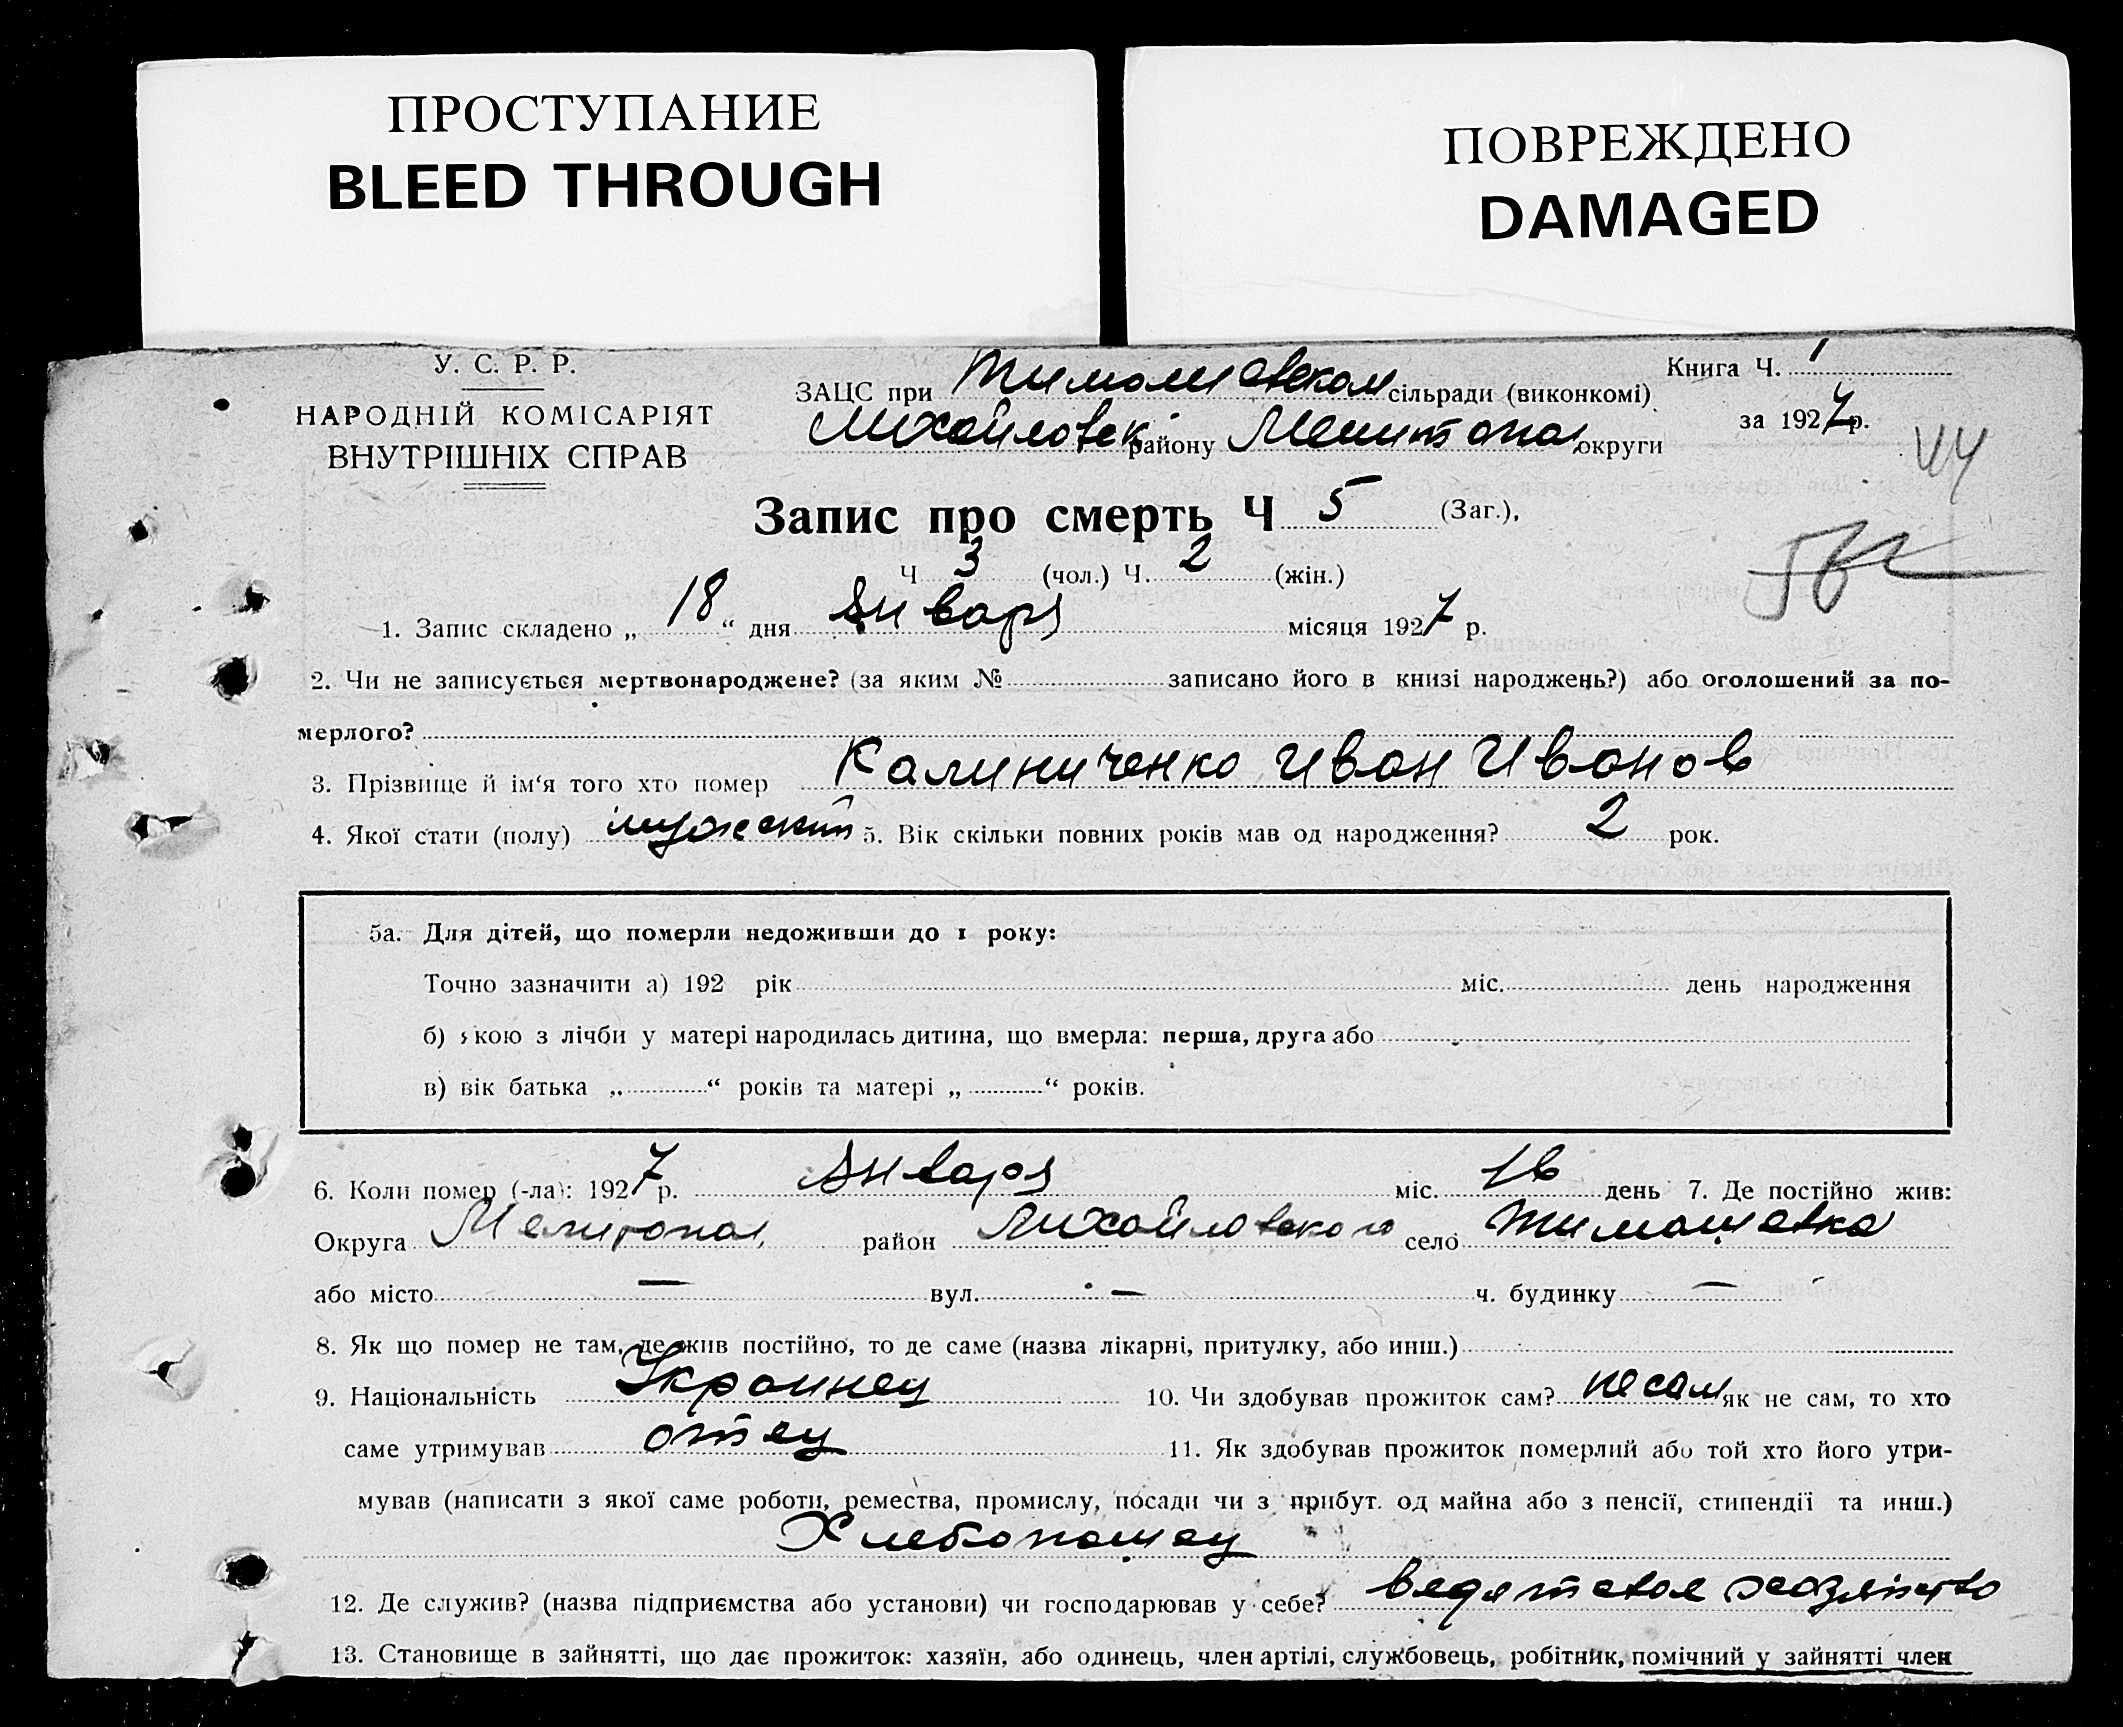 ПРОСТУПАНИЕ
BLEED THROUGH
ПОВРЕЖДЕНО
DAMAGED
У. С. Р. Р.
НАРОДНІЙ КОМІСАРІЯТ
ВНУТРІШНІХ СПРАВ
ЗАЦС при Тимошевском сільради (виконкомі)
Михайловск району Мелитопол округи
Книга Ч. 1
за 1927 р.
44
Запис про смерть Ч 5 (Заг.),
Ч 3 (чол.) Ч. 2 (жін.)
1. Запис складено „ 18 “ дня Января місяця 1927 р.
2. Чи не записується мертвонароджене? (за яким № записано його в книзі народжень?) або оголошений за по-
мерлого?
3. Прізвище й ім‘я того хто помер Калиниченко Иван Иванов
4. Якої стати (полу) мужский 5. Вік скільки повних років мав од народження? 2 рок.
5а. Для дітей, що померли недоживши до 1 року:
Точно зазначити а) 192 рік міс. день народження
б) якою з лічби у матері народилась дитина, що вмерла: перша, друга або
в) вік батька „ “ років та матері „ “ років.
6. Коли помер (-ла): 1927 р. Января міс. 16 день 7. Де постійно жив:
Округа Мелитопол район Михайловского село Тимашевка
або місто — вул. — ч. будинку —
8. Як що помер не там, де жив постійно, то де саме (назва лікарні, притулку, або инш.)
9. Національність Украинец 10. Чи здобував прожиток сам? не сам як не сам, то хто
саме утримував отец 11. Як здобував прожиток померлий або той хто його утри-
мував (написати з якої саме роботи, ремества, промислу, посади чи з прибут. од майна або з пенсії, стипендії та инш.)
Хлебопашец
12. Де служив? (назва підприємства або установи) чи господарював у себе? ведят свое хозяйство
13. Становище в зайнятті, що дає прожиток: хазяїн, або одинець, член артілі, службовець, робітник, помічний у зайнятті член